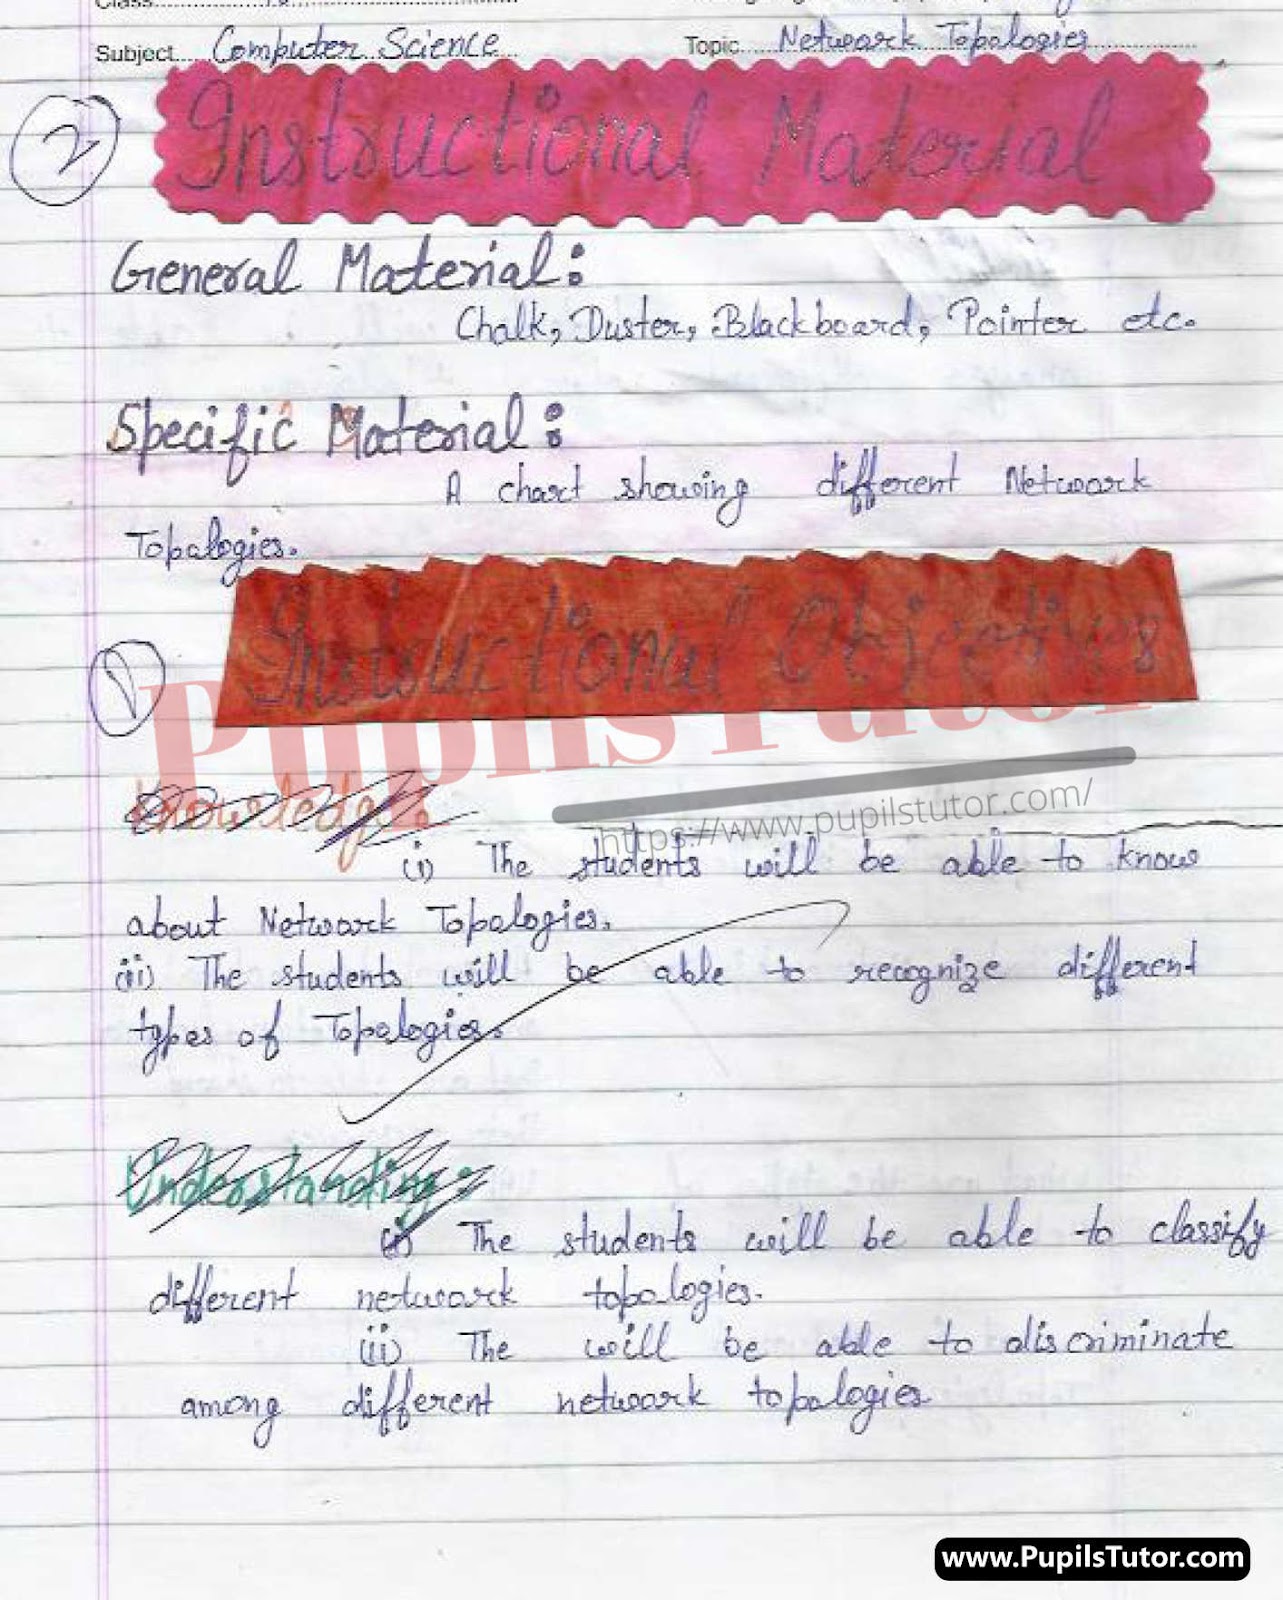 Class
Subject Computer Science Topic Netwoark Topalogies
2 Instructional Material
General Material:
Chalk, Duster, Blackboard, Pointer etc.
Specific Material:
A chart showing different Netwoark
Topalogies.
1) Instructional Objectives
PupilsTutor
https://www.pupilstutor.com/
Knowledge:
(i) The students will be able to know
about Netwoark Topalogies.
(ii) The students will be able to recognize different
types of Topalogies.
Understanding:
(i) The students will be able to classify
different netwoark topalogies.
(ii) The will be able to discriminate
among different netwoark topalogies
www.PupilsTutor.com